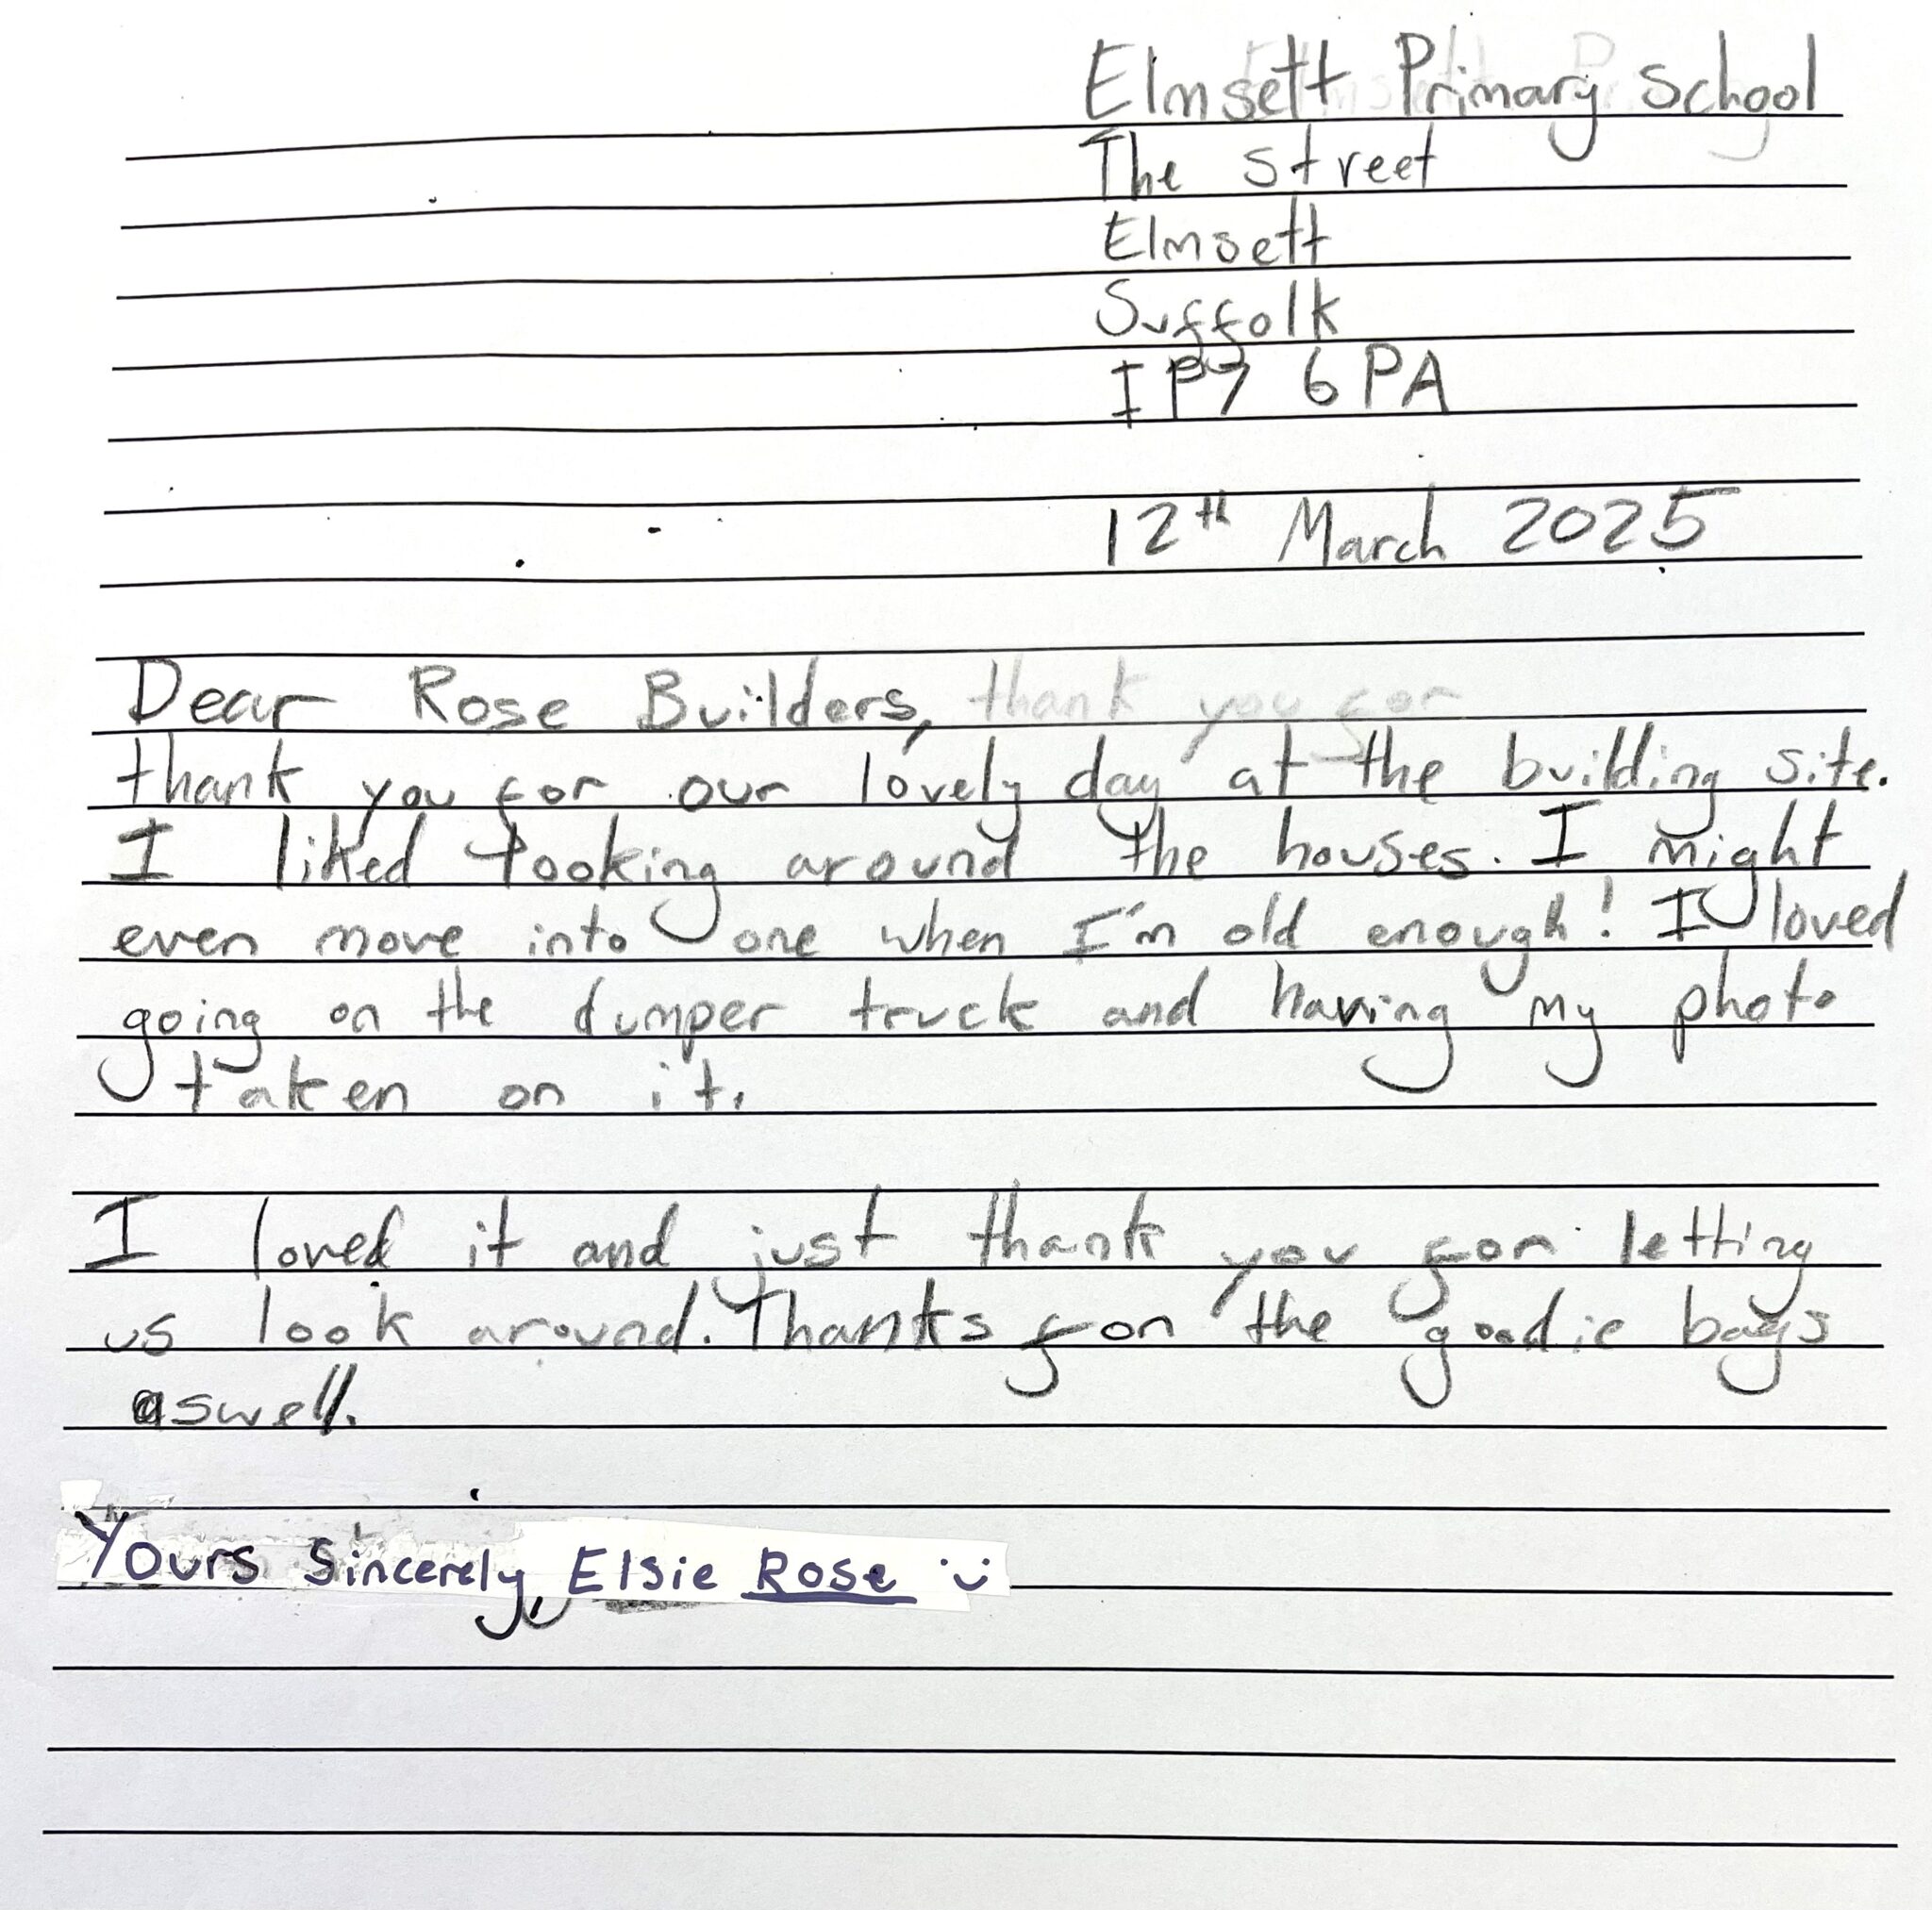 Elmsett Primary School
The street
Elmsett
Suffolk
IP7 6PA
12th March 2025
Dear Rose Builders, thank you for
thank you for our lovely day at the building site.
I liked looking around the houses. I might
even move into one when I'm old enough! I loved
going on the dumper truck and having my photo
taken on it.
I loved it and just thank you for letting
us look around. Thanks for the goodie bags
aswell.
Yours Sincerely, Elsie Rose :)